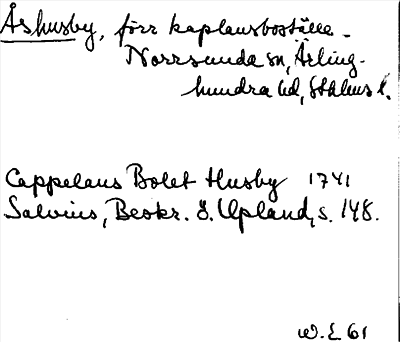 Åshusby, förr kaplansboställe.
Norrsunda sn, Ärling-
hundra hd, Sthlms l.
Cappelans Bolet Husby 1741
Salvius, Beskr. ö. Upland, s. 148.
W. E 61